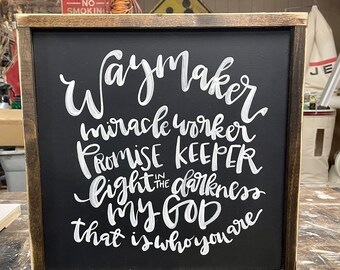 NO
SMOKING
Waymaker
miracle worker
PROMISE KEEPER
light IN THE darkness
MY GOD
that is who you are
JE